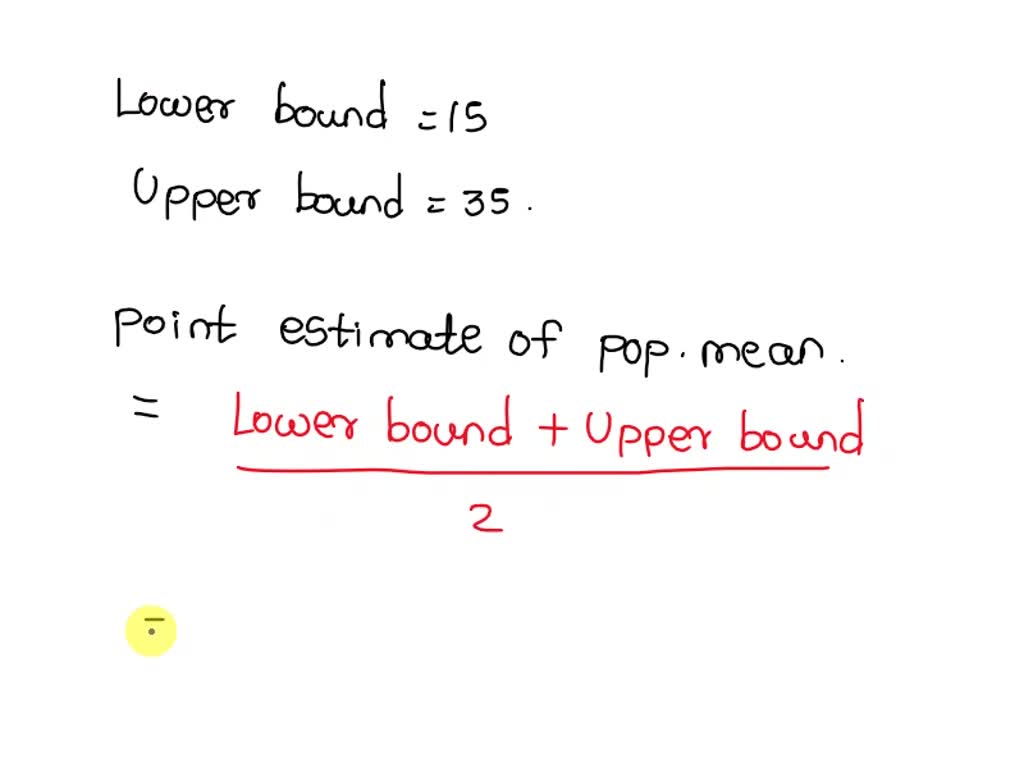 Lower bound = 15
Upper bound = 35.
point estimate of pop. mean.
= Lower bound + Upper bound
2